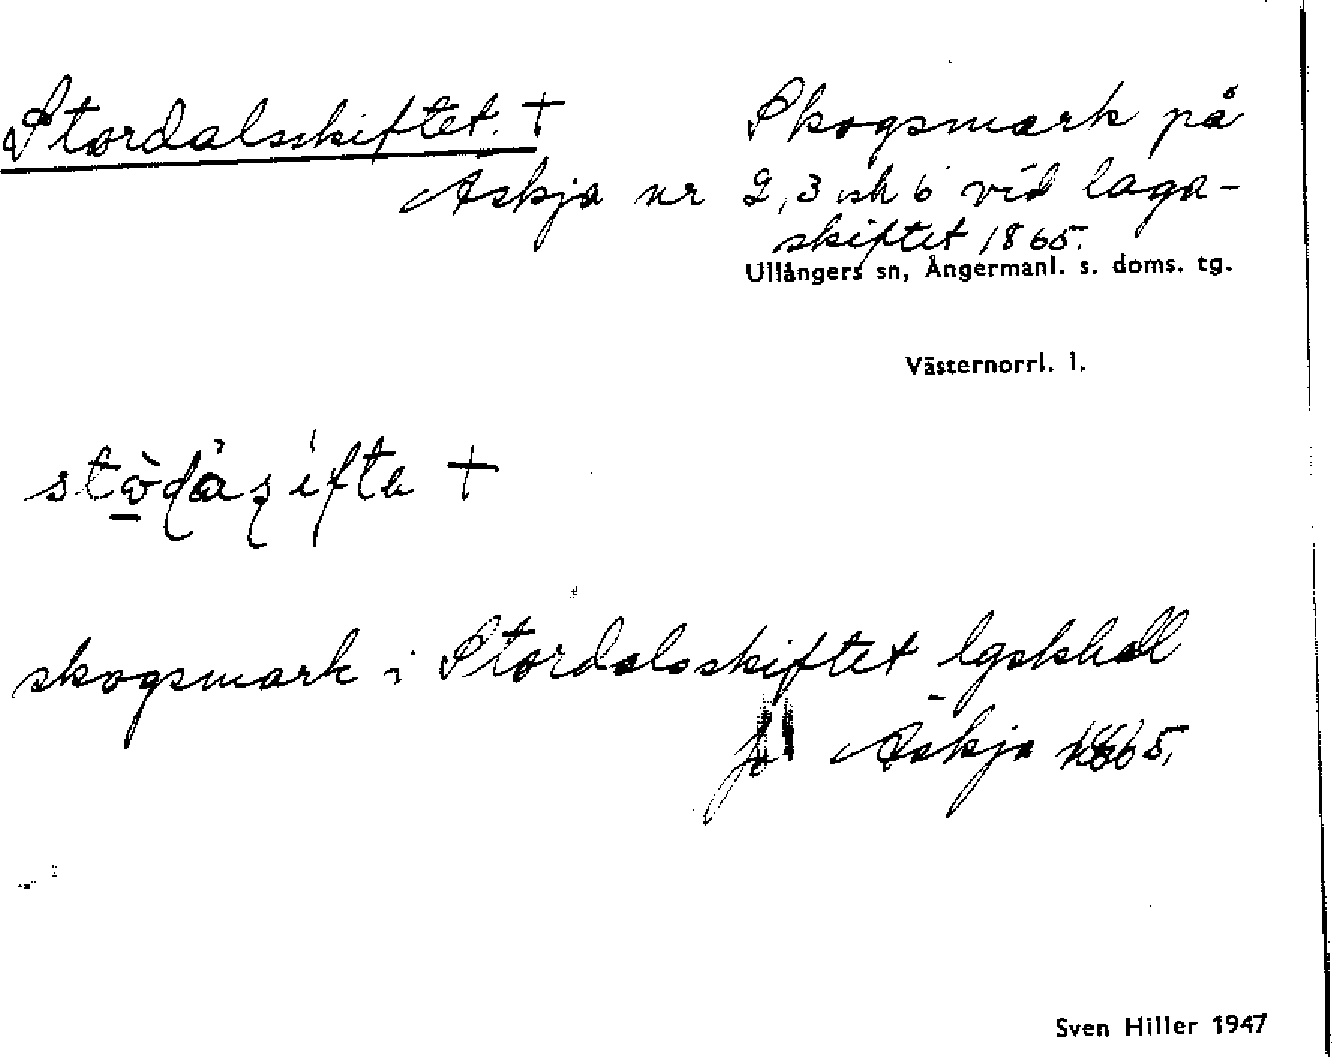 Stordalsskiftet. +
Skogsmark på
Äskja nr 2, 3 och 6 vid laga-
skiftet 1865.
Ullångers sn, Ångermanl. s. doms. tg.
Västernorrl. l.
skogsmark i Stordalsskiftet lgskhdl
Äskja 1865.
Sven Hiller 1947